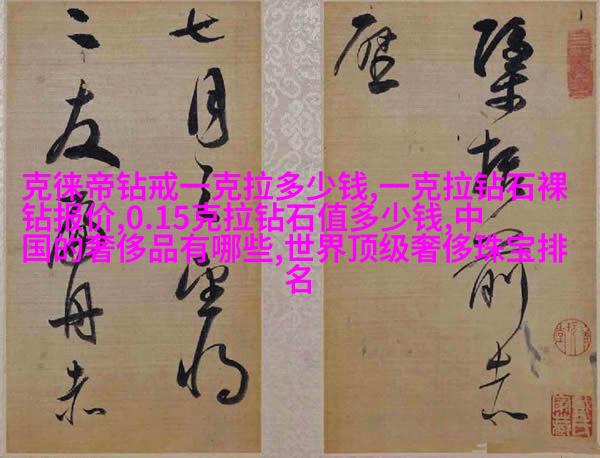 克徕帝钻戒一克拉多少钱,一克拉钻石裸
钻报价,0.15克拉钻石值多少钱,中
国的奢侈品有哪些,世界顶级奢侈珠宝排
名
括前赤
壁
七月
二友 丹赤